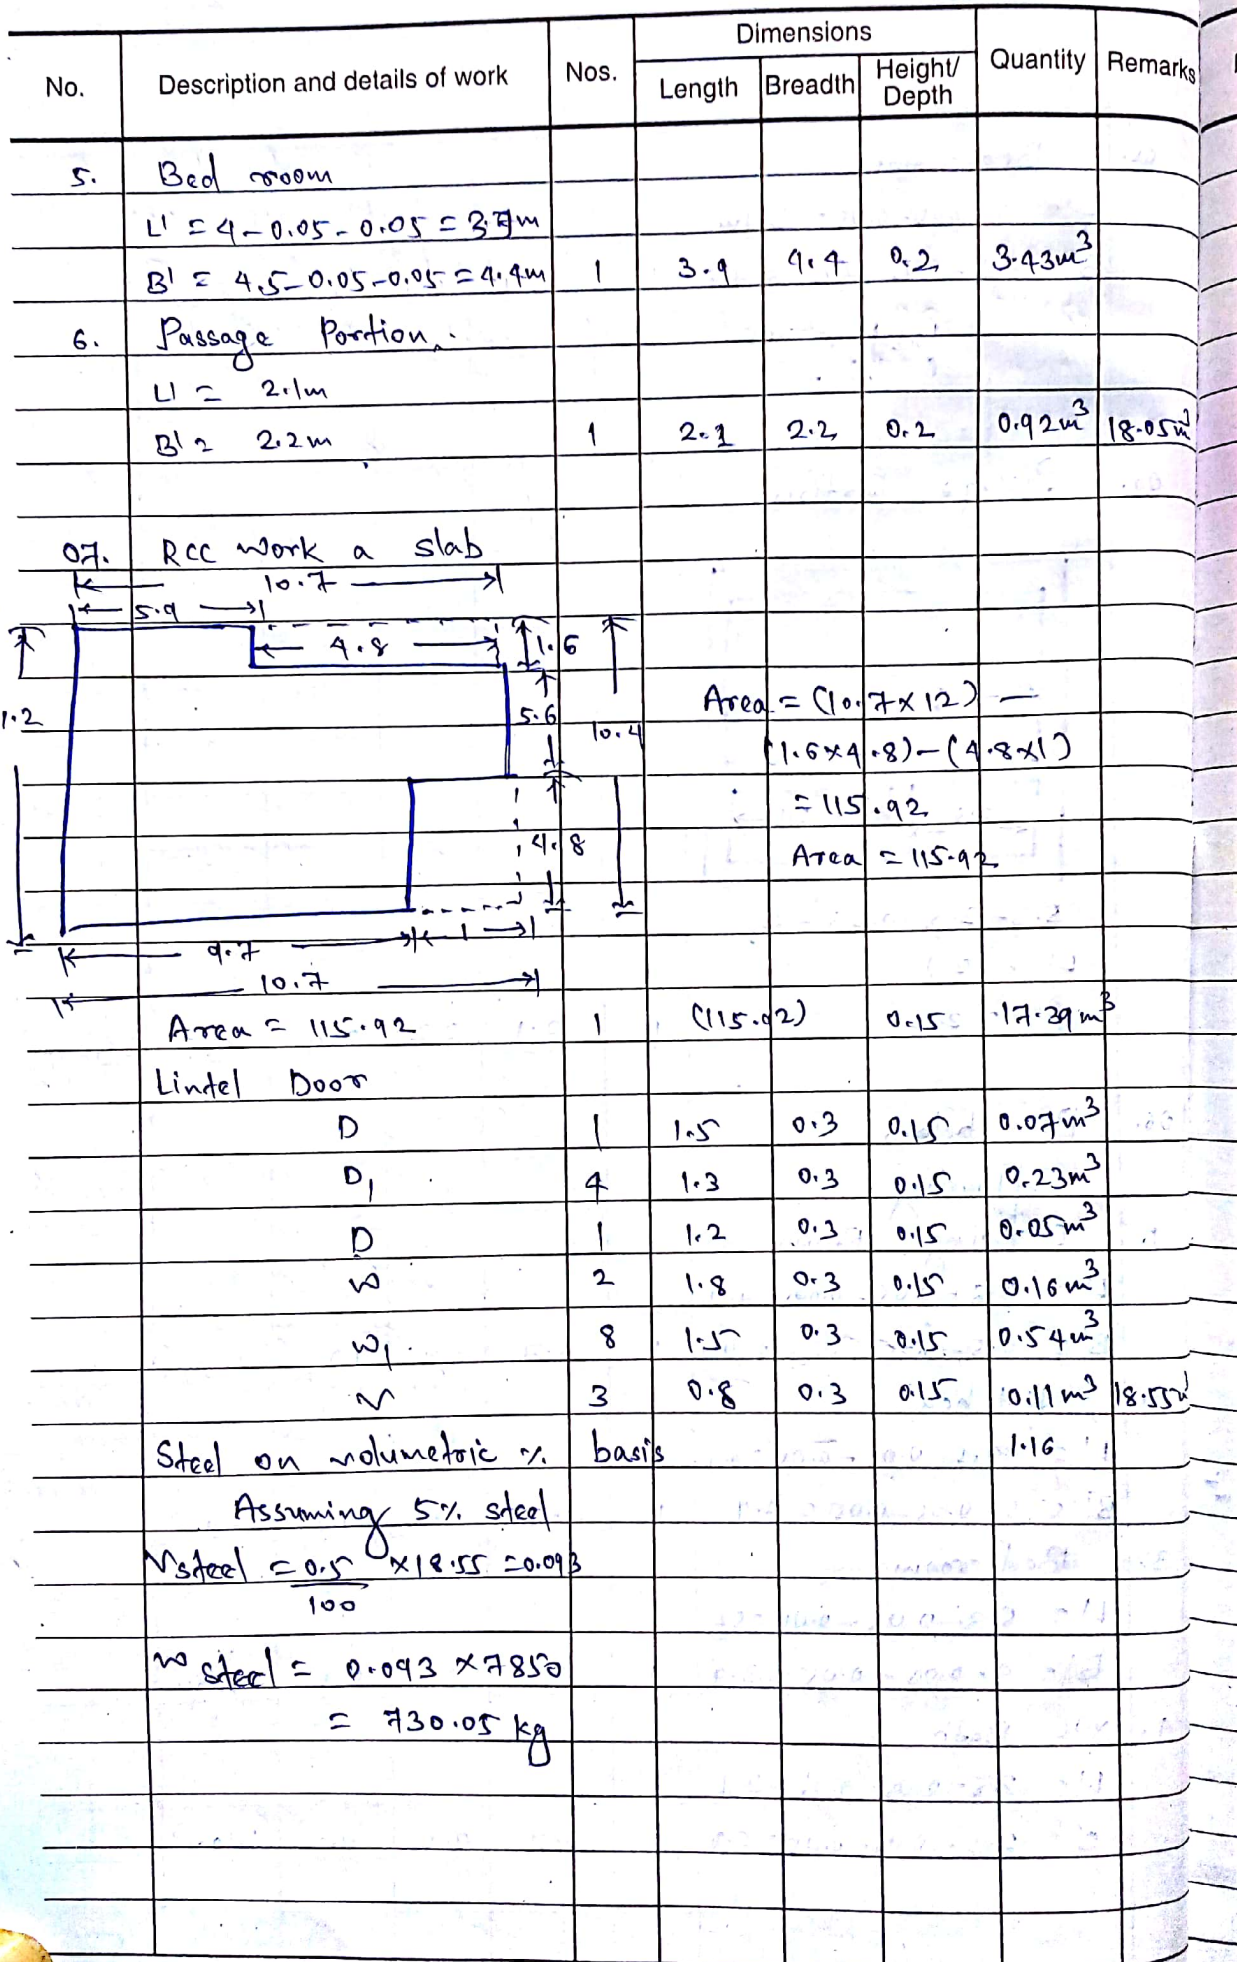 No. Description and details of work Nos. Dimensions Quantity Remarks
Length Breadth Height/ Depth
5. Bed room
L' = 4 - 0.05 - 0.05 = 3.9m
B' = 4.5 - 0.05 - 0.05 = 4.4m 1 3.9 4.4 0.2 3.43m³
6. Passage Portion.
L' = 2.1m
B' = 2.2m 1 2.1 2.2 0.2 0.92m³ 18.05m³
07. RCC work a slab
10.7
5.9
4.8 1.6
1.2 5.6 10.4
Area = (10.7 x 12) -
(1.6 x 4.8) - (4.8 x 1)
= 115.92
4.8
Area = 115.92
9.7 1
10.7
Area = 115.92 1 (115.92) 0.15 17.39m³
Lintel Door
D 1 1.5 0.3 0.15 0.07m³
D1 4 1.3 0.3 0.15 0.23m³
D 1 1.2 0.3 0.15 0.05m³
W 2 1.8 0.3 0.15 0.16m³
W1 8 1.5 0.3 0.15 0.54m³
V 3 0.8 0.3 0.15 0.11m³ 18.55m³
Steel on volumetric % basis 1.16
Assuming 5% steel
Vsteel = 0.5/100 x 18.55 = 0.093
W steel = 0.093 x 7850
= 730.05 kg